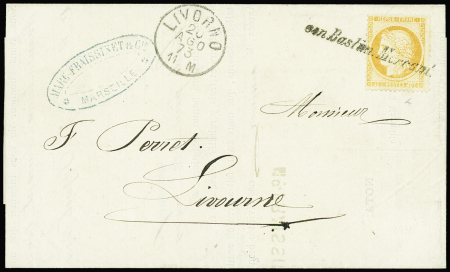 MARC FRAISSINET & Cie
MARSEILLE
LIVORNO
20
AGO
73
11 M
con Bastim. Mercant.
Monsieur
F. Perret
Livourne